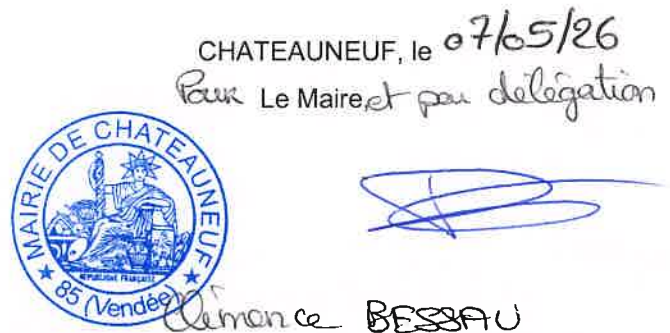 CHATEAUNEUF, le 07/05/26
Pour Le Maire, et par délégation
MAIRIE DE CHATEAUNEUF
RÉPUBLIQUE FRANÇAISE
★ 85 (Vendée) ★
Clémence BESSAU